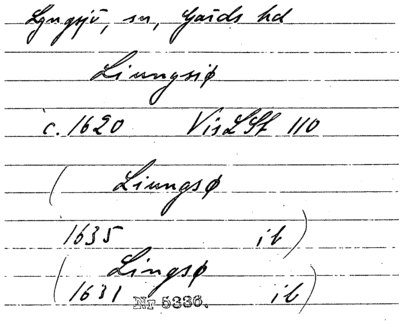 Lyngsjö, sn, Gärds hd
Liungsiø
c. 1620 VisLSt 110
( Liungsø
1635 ib )
( Lingsø
1631 ib )
Nr 5336.